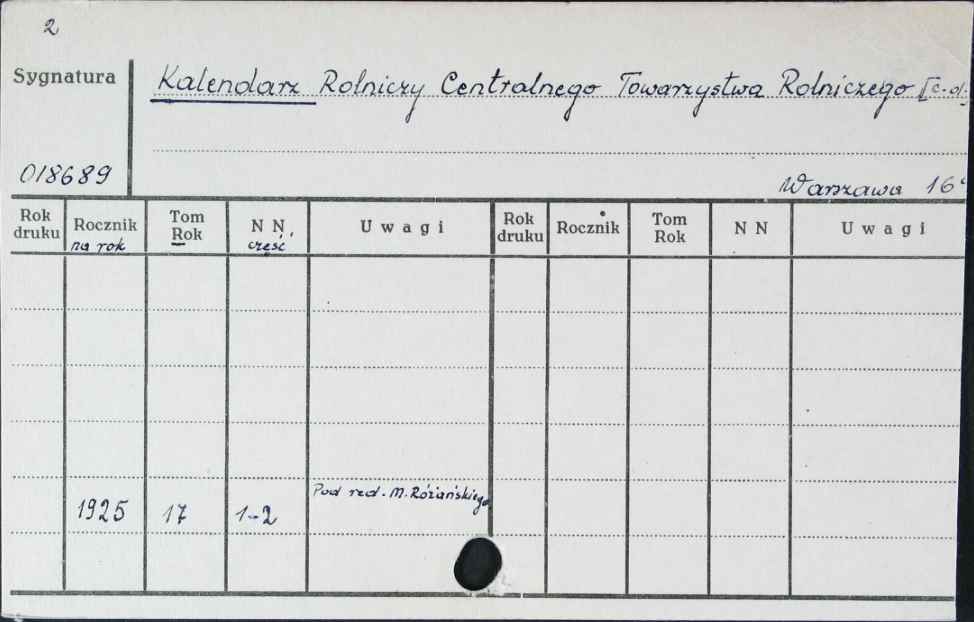 2
Sygnatura
Kalendarz Rolniczy Centralnego Towarzystwa Rolniczego [c.d.
018689
Warszawa 16°
Rok druku Rocznik na rok Tom Rok N N, część Uwagi Rok druku Rocznik Tom Rok N N Uwagi
Pod red. M. Różańskiego
1925 17 1-2